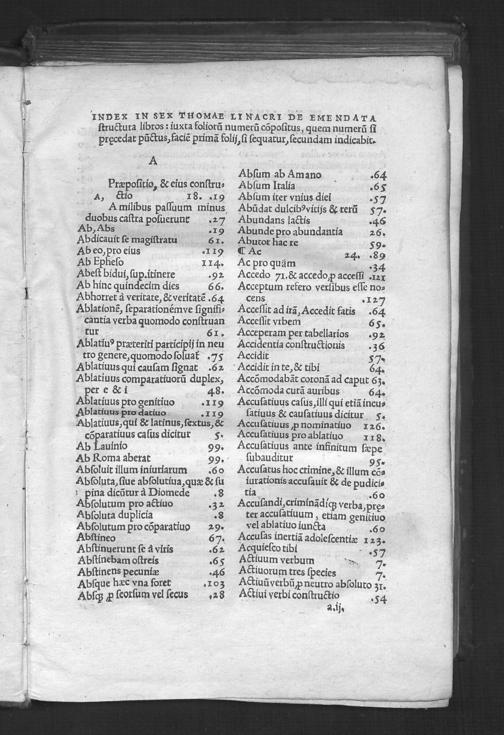 INDEX IN SEX THOMAE LINACRI DE EMENDATA
structura libros: iuxta foliorū numerū cōpositus, quem numerū si
pręcedat pūctus, faciē primā folij, si sequatur, secundam indicabit.
A
Præpositio, & eius constru-
A, ctio 18. .19
A milibus passuum minus
duobus castra posuerunt .27
Ab, Abs .19
Abdicauit se magistratu 61.
Ab eo, pro eius .119
Ab Epheso 114.
Abest bidui, sup. itinere .92
Ab hinc quindecim dies 66.
Abhorret à veritate, & veritatē .64
Ablationē, separationémve signifi-
cantia verba quomodo construan
tur 61.
Ablatiuꝰ præteriti participij in neu
tro genere, quomodo soluat᷑ .75
Ablatiuus qui causam signat .62
Ablatiuus comparatiuorū duplex,
per e & i 48.
Ablatiuus pro genitiuo .119
Ablatiuus pro datiuo .119
Ablatiuus, qui & latinus, sextus, &
cōparatiuus casus dicitur 5.
Ab Lauinio 99.
Ab Roma aberat 99.
Absoluit illum iniuriarum .60
Absoluta, siue absolutiua, quæ & su
pina dicūtur à Diomede .8
Absolutum pro actiuo .32
Absoluta duplicia .8
Absolutum pro cōparatiuo 29.
Abstineo 67.
Abstinuerunt se à viris .62
Abstinebam ostreis .65
Abstinens pecuniæ .46
Absque hæc vna foret .103
Absq; ꝓ seorsum vel secus .28
Absum ab Amano .64
Absum Italia .65
Absum iter vnius diei .57
Abūdat dulcibꝰ vitijs & rerū 57.
Abundans lactis .46
Abunde pro abundantia 26.
Abutor hac re 59.
¶ Ac 24. .89
Ac pro quàm .34
Accedo 71. & accedo, ꝓ accessi .121
Acceptum refero versibus esse no-
cens .127
Accessit ad irā, Accedit fatis .64
Accessit vrbem 65.
Acceperam per tabellarios .92
Accidentia constructionis .36
Accidit 57.
Accidit in te, & tibi 64.
Accōmodabāt coronā ad caput 63.
Accōmoda curā auribus 64.
Accusatiuus casus, illi qui etiā incu-
satiuus & causatiuus dicitur 5.
Accusatiuus ꝓ nominatiuo 126.
Accusatiuus pro ablatiuo 118.
Accusatiuus ante infinitum sæpe
subauditur 95.
Accusatus hoc crimine, & illum cō-
iurationis accusauit & de pudici-
tia .60
Accusandi, criminādíq; verba, pręe-
ter accusatiuum, etiam genitiuo
vel ablatiuo iuncta .60
Accusas inertiā adolescentiæ 123.
Acquiesco tibi .57
Actiuum verbum 7.
Actiuorum tres species 7.
Actiuū verbū, ꝓ neutro absoluto 31.
Actiui verbi constructio .54
a.ij.